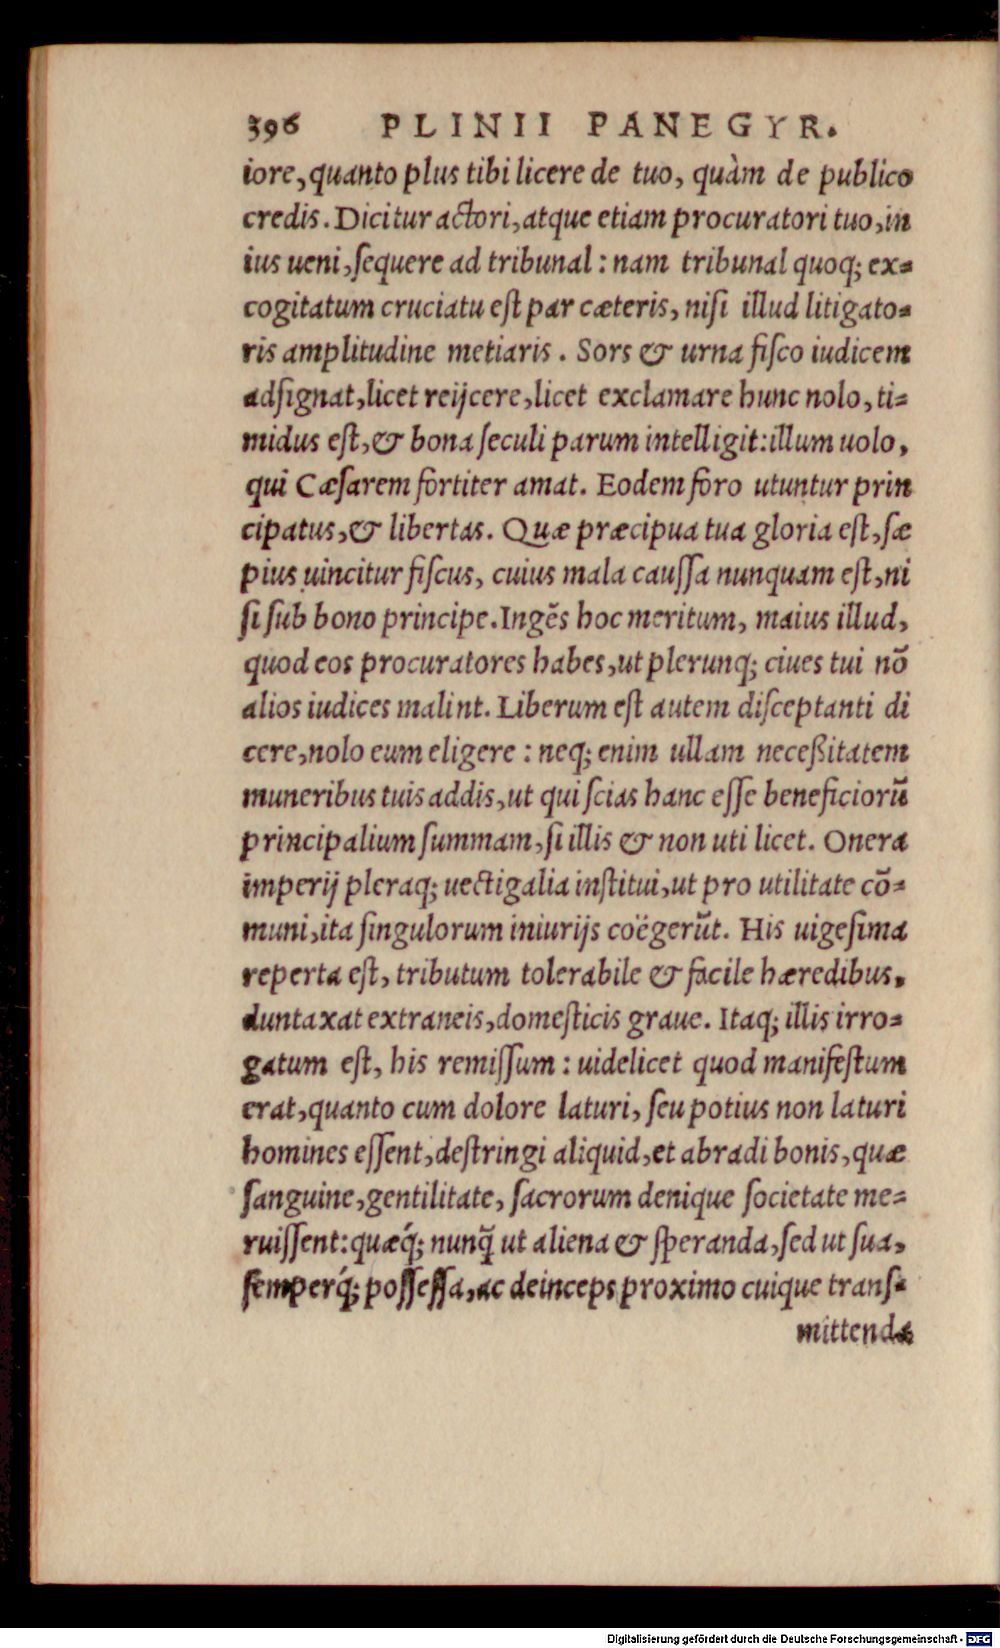 396 PLINII PANEGYR.
iore, quanto plus tibi licere de tuo, quàm de publico
credis. Dicitur actori, atque etiam procuratori tuo, in
ius ueni, ſequere ad tribunal: nam tribunal quoq; ex=
cogitatum cruciatu eſt par cæteris, niſi illud litigato=
ris amplitudine metiaris. Sors & urna fiſco iudicem
adſignat, licet reijcere, licet exclamare hunc nolo, ti=
midus eſt, & bona ſeculi parum intelligit: illum uolo,
qui Cæſarem fortiter amat. Eodem foro utuntur prin
cipatus, & libertas. Quæ præcipua tua gloria eſt, ſæ
pius uincitur fiſcus, cuius mala cauſſa nunquam eſt, ni
ſi ſub bono principe. Ingēs hoc meritum, maius illud,
quod eos procuratores habes, ut plerunq; ciues tui nō
alios iudices malint. Liberum eſt autem diſceptanti di
cere, nolo eum eligere: neq; enim ullam neceßitatem
muneribus tuis addis, ut qui ſcias hanc eſſe beneficiorū
principalium ſummam, ſi illis & non uti licet. Onera
imperij pleraq; uectigalia inſtitui, ut pro utilitate cō=
muni, ita ſingulorum iniurijs coëgerūt. His uigeſima
reperta eſt, tributum tolerabile & facile hæredibus,
duntaxat extraneis, domeſticis graue. Itaq; illis irro=
gatum eſt, his remiſſum: uidelicet quod manifeſtum
erat, quanto cum dolore laturi, ſeu potius non laturi
homines eſſent, deſtringi aliquid, et abradi bonis, quæ
ſanguine, gentilitate, ſacrorum denique ſocietate me=
ruiſſent: quæq́; nunq̃ ut aliena & ſperanda, ſed ut ſua,
ſemperq́; poſſeſſa, ac deinceps proximo cuique tranſ=
mittenda
Digitalisierung gefördert durch die Deutsche Forschungsgemeinschaft - DFG